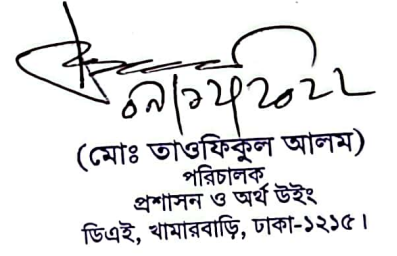 (মোঃ তাওফিকুল আলম)
পরিচালক
প্রশাসন ও অর্থ উইং
ডিএই, খামারবাড়ি, ঢাকা-১২১৫।